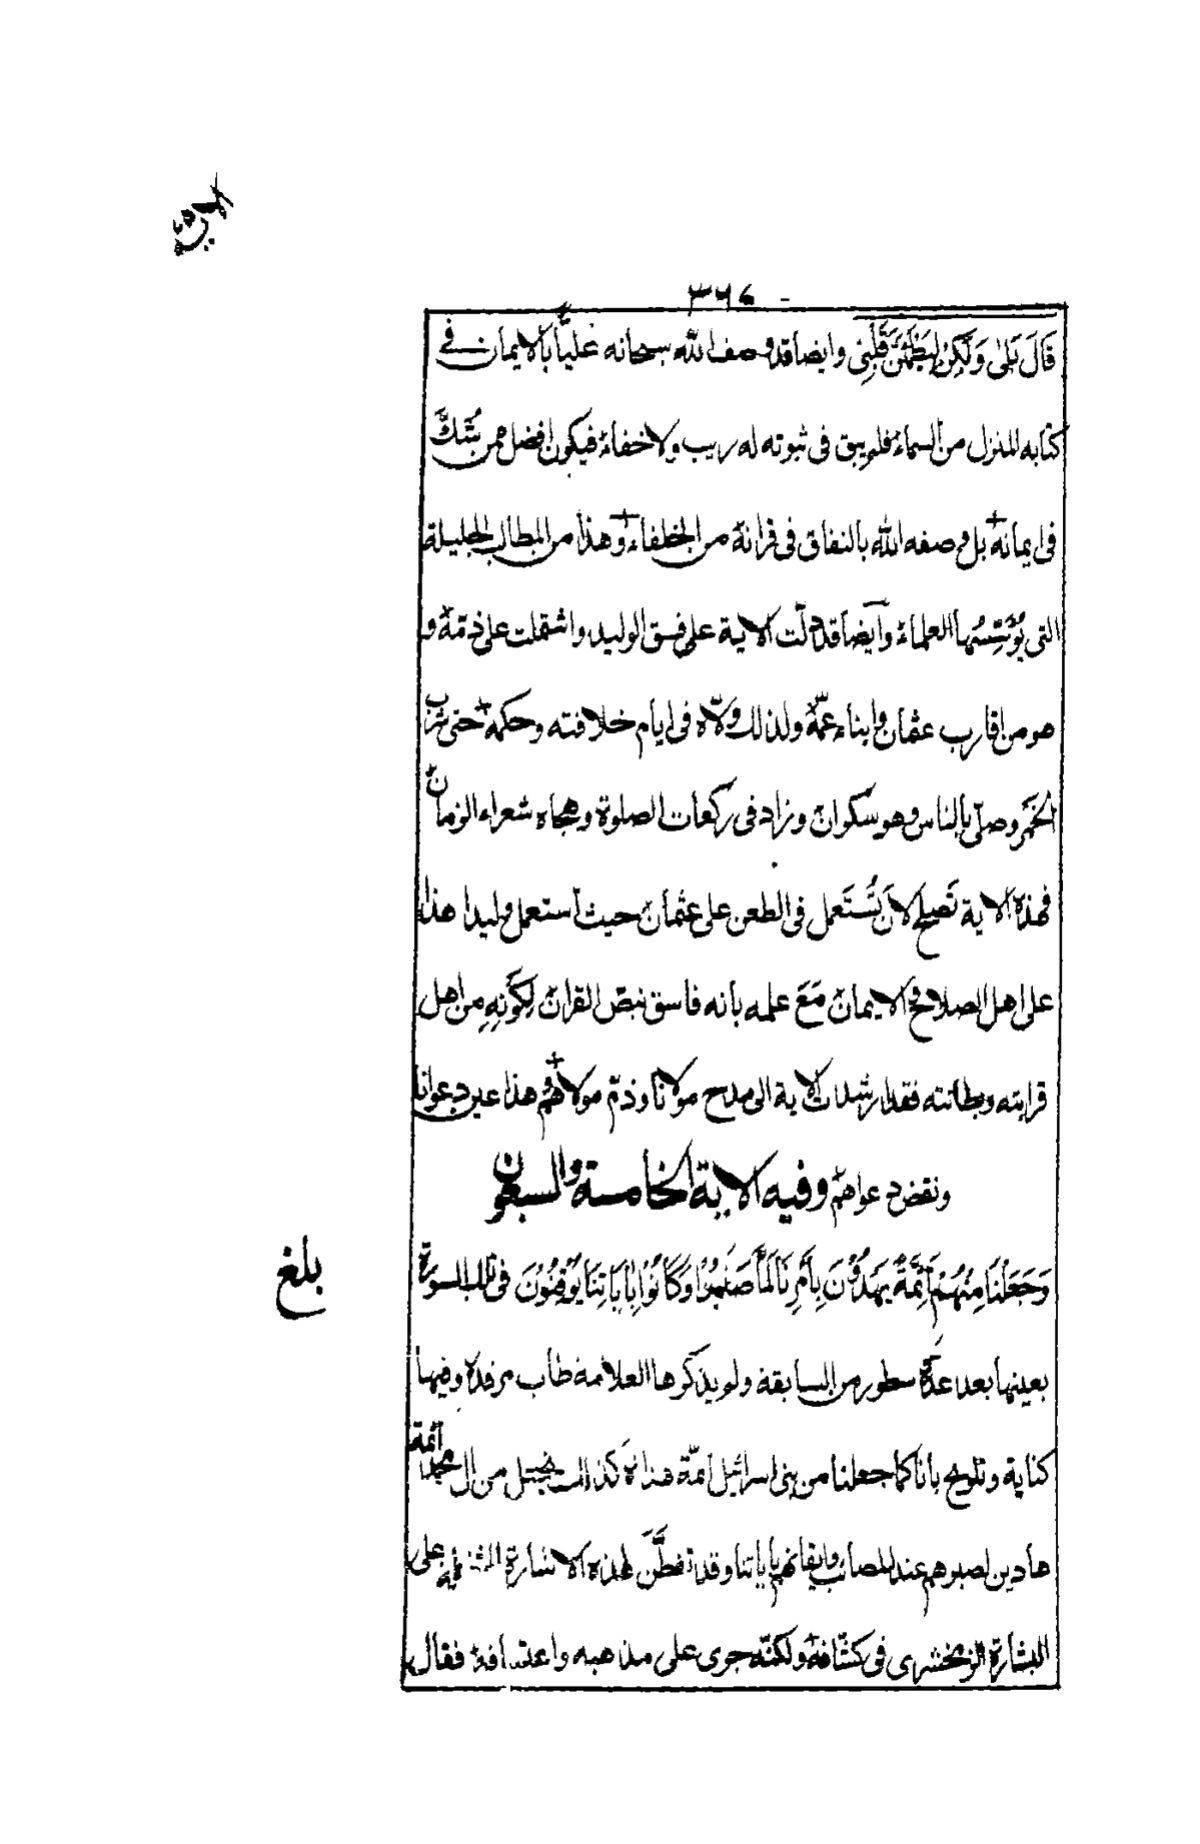 ٣٦٧
قَالَ بَلٰى وَلٰكِنْ لِيَطْمَئِنَّ قَلْبِىْ وايضا قد وصف الله سبحانه عليّا بالايمان فے
كتابه المنزل من السماء فلم يبق فى ثبوته له ريب ولا خفاء فيكون افضل ممن شَكَّ
فى ايمانه بل وصفه الله بالنفاق فى قرانه من الخلفاء وهذا من المطالب الجليلة
التى يُؤسِّسُها العلماء وآيضا قد دلّت الاية على فسق الوليد واشتملت على ذمّه و
هو من اقارب عثمان وابناء عمّه ولذالك ولّاه فى ايام خلافته وحكمه حتى شرب
الخَمْر وصلّى بالناس وهو سكران وزاد فى ركعات الصلوة وهجاه شعراء الزمان
فهذه الاية تَصلح لاَن تُستَعمل فى الطعن على عثمان حيث استعمل وليدا هذا
على اهل الصلاح والايمان مَعَ علمه بانه فاسق بنصّ القران لِكَونِهِ من اهل
قرابته وبطانته فقد ارشدت الاية الى مدح مولانا وذمّ مولاهم وهذا عين دعوانا
ونقض دعواهم وفيه الاية الخامسة والسبعون
وَجَعَلْنَا مِنْهُمْ اَئِمَّةً يَهْدُوْنَ بِاَمْرِنَا لَمَّا صَبَرُوْا وَكَانُوْا بِاٰيَاتِنَا يُوْقِنُوْنَ فى تلك السورة
بلغ
بعينها بعد عدّة سطور من السابقة ولم يذكرها العلامة طاب مرقده وفيها
كناية وتلويح بانا كما جعلنا من بنى اسرائيل امّة هداة كذالك نجعل من ال محمد ائمة
هادين لصبرهم عند المصائب وايقانهم باياتنا وقد تفطَّنَ لهذه الاشارة على
البشارة الزمخشرى فى كشّافه ولكنّه جرى على مذهبه واعتسافه فقال